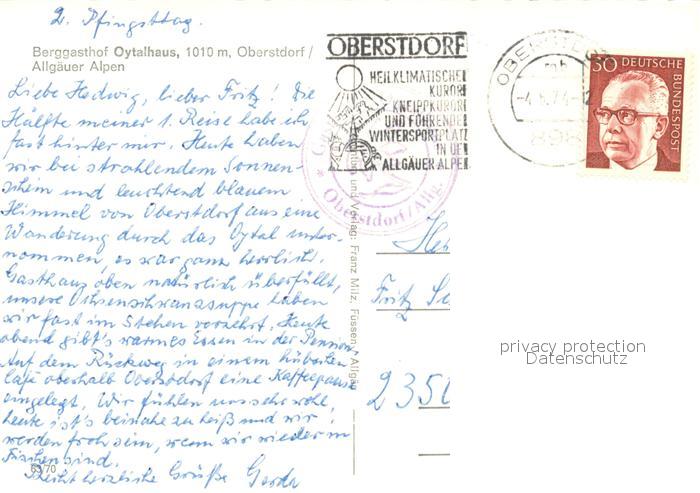 2. Pfingsttag.
Berggasthof Oytalhaus, 1010 m, Oberstdorf /
Allgäuer Alpen
Liebe Hedwig, lieber Fritz! Die
Hälfte meiner 1. Reise habe ich
fast hinter mir. Heute haben
wir bei strahlendem Sonnen-
schein und leuchtend blauem
Himmel von Oberstdorf aus eine
Wanderung durch das Oytal unter-
nommen, es war ganz herrlich.
Gasthaus oben natürlich überfüllt,
unsere Ochsenschwanzsuppe haben
wir fast im Stehen verzehrt. Heute
abend gibt's warmes Essen in der Pension.
Auf dem Rückweg in einem hübschen
Café oberhalb Oberstdorf eine Kaffeepause
eingelegt. Wir fühlen uns sehr wohl,
heute ist's beinahe zu heiß und wir
werden froh sein, wenn wir wieder in
Fischen sind.
63/70
herzliche Grüße Gerda
OBERSTDORF
HEILKLIMATISCHER
KURORT
KNEIPPKURORT
UND FÜHRENDER
WINTERSPORTPLATZ
IN DEN
ALLGÄUER ALPEN
Oberstdorf/Allg
und Verlag: Franz Milz, Füssen / Allgäu
OBERSTDORF
mb
898
30 DEUTSCHE
BUNDESPOST
Fritz
2350
privacy protection
Datenschutz